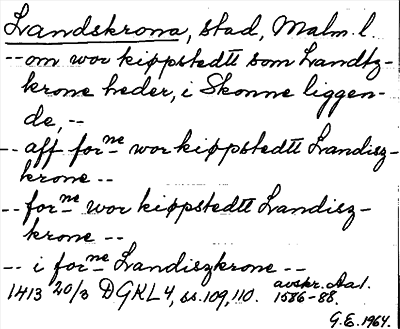 Landskrona, stad, Malm. l.
-- om wor kiøpstedtt som Landtz-
krone heder, i Skonne liggen-
de, --
-- aff forne wor kiøpstedtt Landisz-
krone --
-- forne wor kiøpstedtt Landisz-
krone --
-- i forne Landiszkrone --
1413 20/3 DGKL 4, ss. 109, 110. avskr. Aal.
1586-88.
G.E. 1964.